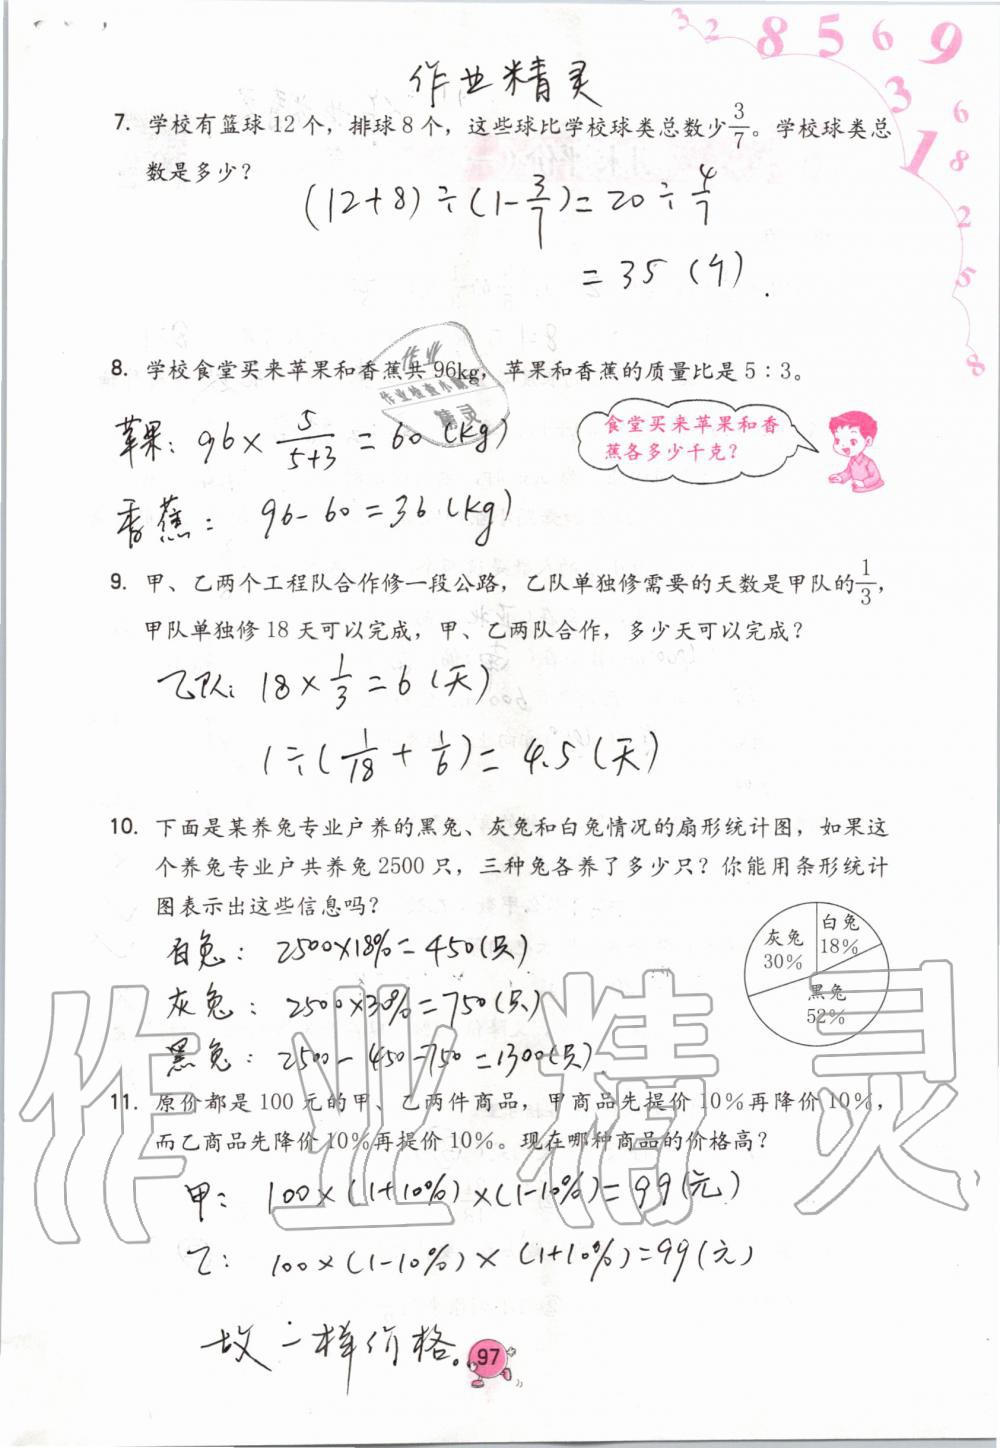 3 2 8 5 6 9
3 1 6 8 2 5 8
作业精灵
7. 学校有篮球12个，排球8个，这些球比学校球类总数少3/7。学校球类总
数是多少？
(12+8)÷(1-3/7)=20÷4/7
=35(个).
8. 学校食堂买来苹果和香蕉共96kg，苹果和香蕉的质量比是5∶3。
作业
作业检查小助手
精灵
食堂买来苹果和香
蕉各多少千克？
苹果: 96×5/(5+3)=60(kg)
香蕉: 96-60=36(kg)
9. 甲、乙两个工程队合作修一段公路，乙队单独修需要的天数是甲队的1/3，
甲队单独修18天可以完成，甲、乙两队合作，多少天可以完成？
乙队: 18×1/3=6(天)
1÷(1/18+1/6)=4.5(天)
10. 下面是某养兔专业户养的黑兔、灰兔和白兔情况的扇形统计图，如果这
个养兔专业户共养兔2500只，三种兔各养了多少只？你能用条形统计
图表示出这些信息吗？
灰兔
30%
白兔
18%
黑兔
52%
白兔: 2500×18%=450(只)
灰兔: 2500×30%=750(只)
黑兔: 2500-450-750=1300(只).
作业精灵
11. 原价都是100元的甲、乙两件商品，甲商品先提价10%再降价10%，
而乙商品先降价10%再提价10%。现在哪种商品的价格高？
甲: 100×(1+10%)×(1-10%)=99(元)
乙: 100×(1-10%)×(1+10%)=99(元)
故一样价格。
97